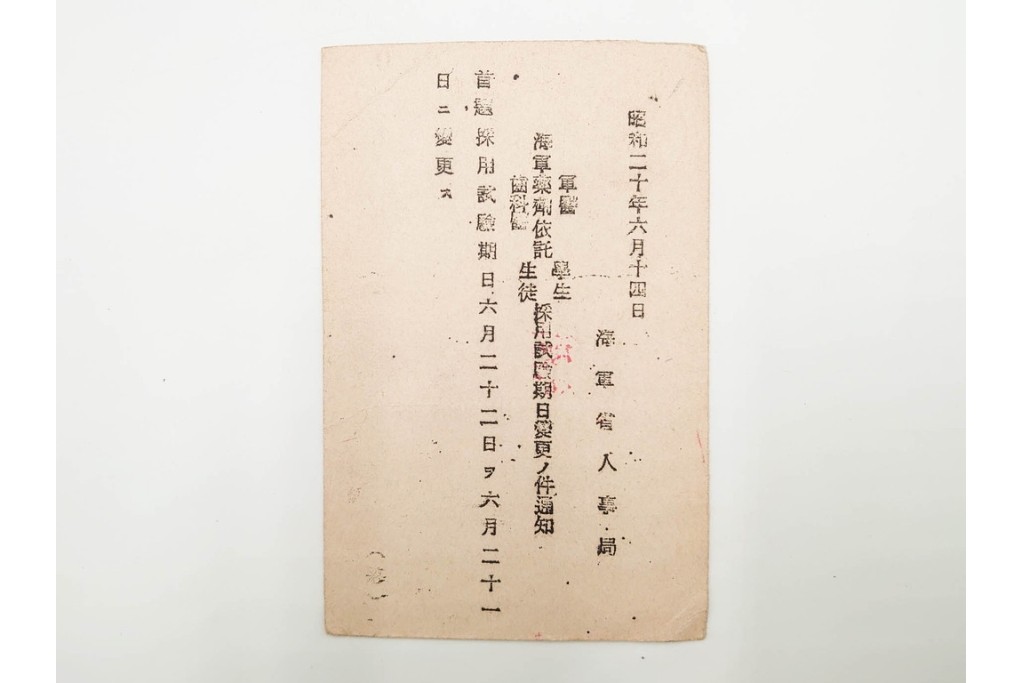 昭和二十年六月十四日
海軍省人事局
軍醫
海軍藥劑依託
齒科醫
學生
生徒
採用試驗期日變更ノ件通知
首題採用試驗期日六月二十二日ヲ六月二十一
日ニ變更ス